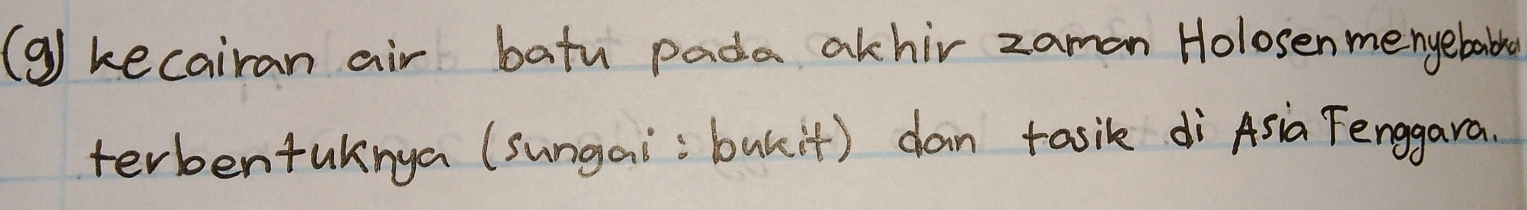 (g) kecairan air batu pada akhir zaman Holosen menyebabkan
terbentuknya (sungai : bukit) dan tasik di Asia Tenggara.